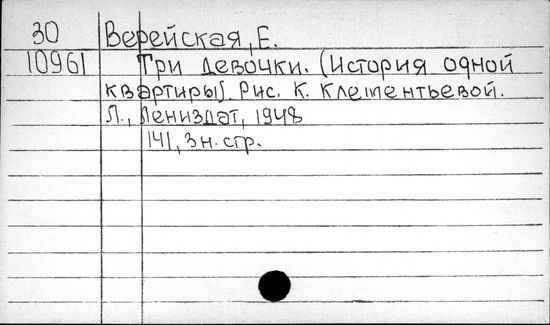 30 Верейская, Е.
10961 Три девочки. (История одной
квартиры). Рис. К. Клементьевой.
Л., Лениздат, 1948
141, 3 н. стр.